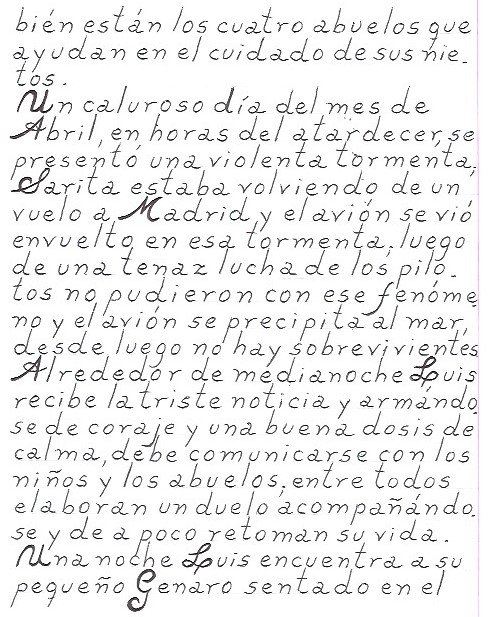 bién están los cuatro abuelos que
ayudan en el cuidado de sus nie-
tos.
Un caluroso día del mes de
Abril, en horas del atardecer, se
presentó una violenta tormenta,
Sarita estaba volviendo de un
vuelo a Madrid y el avión se vió
envuelto en esa tormenta, luego
de una tenaz lucha de los pilo-
tos no pudieron con ese fenóme
no y el avión se precipita al mar,
desde luego no hay sobrevivientes
Alrededor de medianoche Luis
recibe la triste noticia y armándo-
se de coraje y una buena dosis de
calma, debe comunicarse con los
niños y los abuelos, entre todos
elaboran un duelo acompañándo-
se y de a poco retoman su vida.
Una noche Luis encuentra a su
pequeño Genaro sentado en el